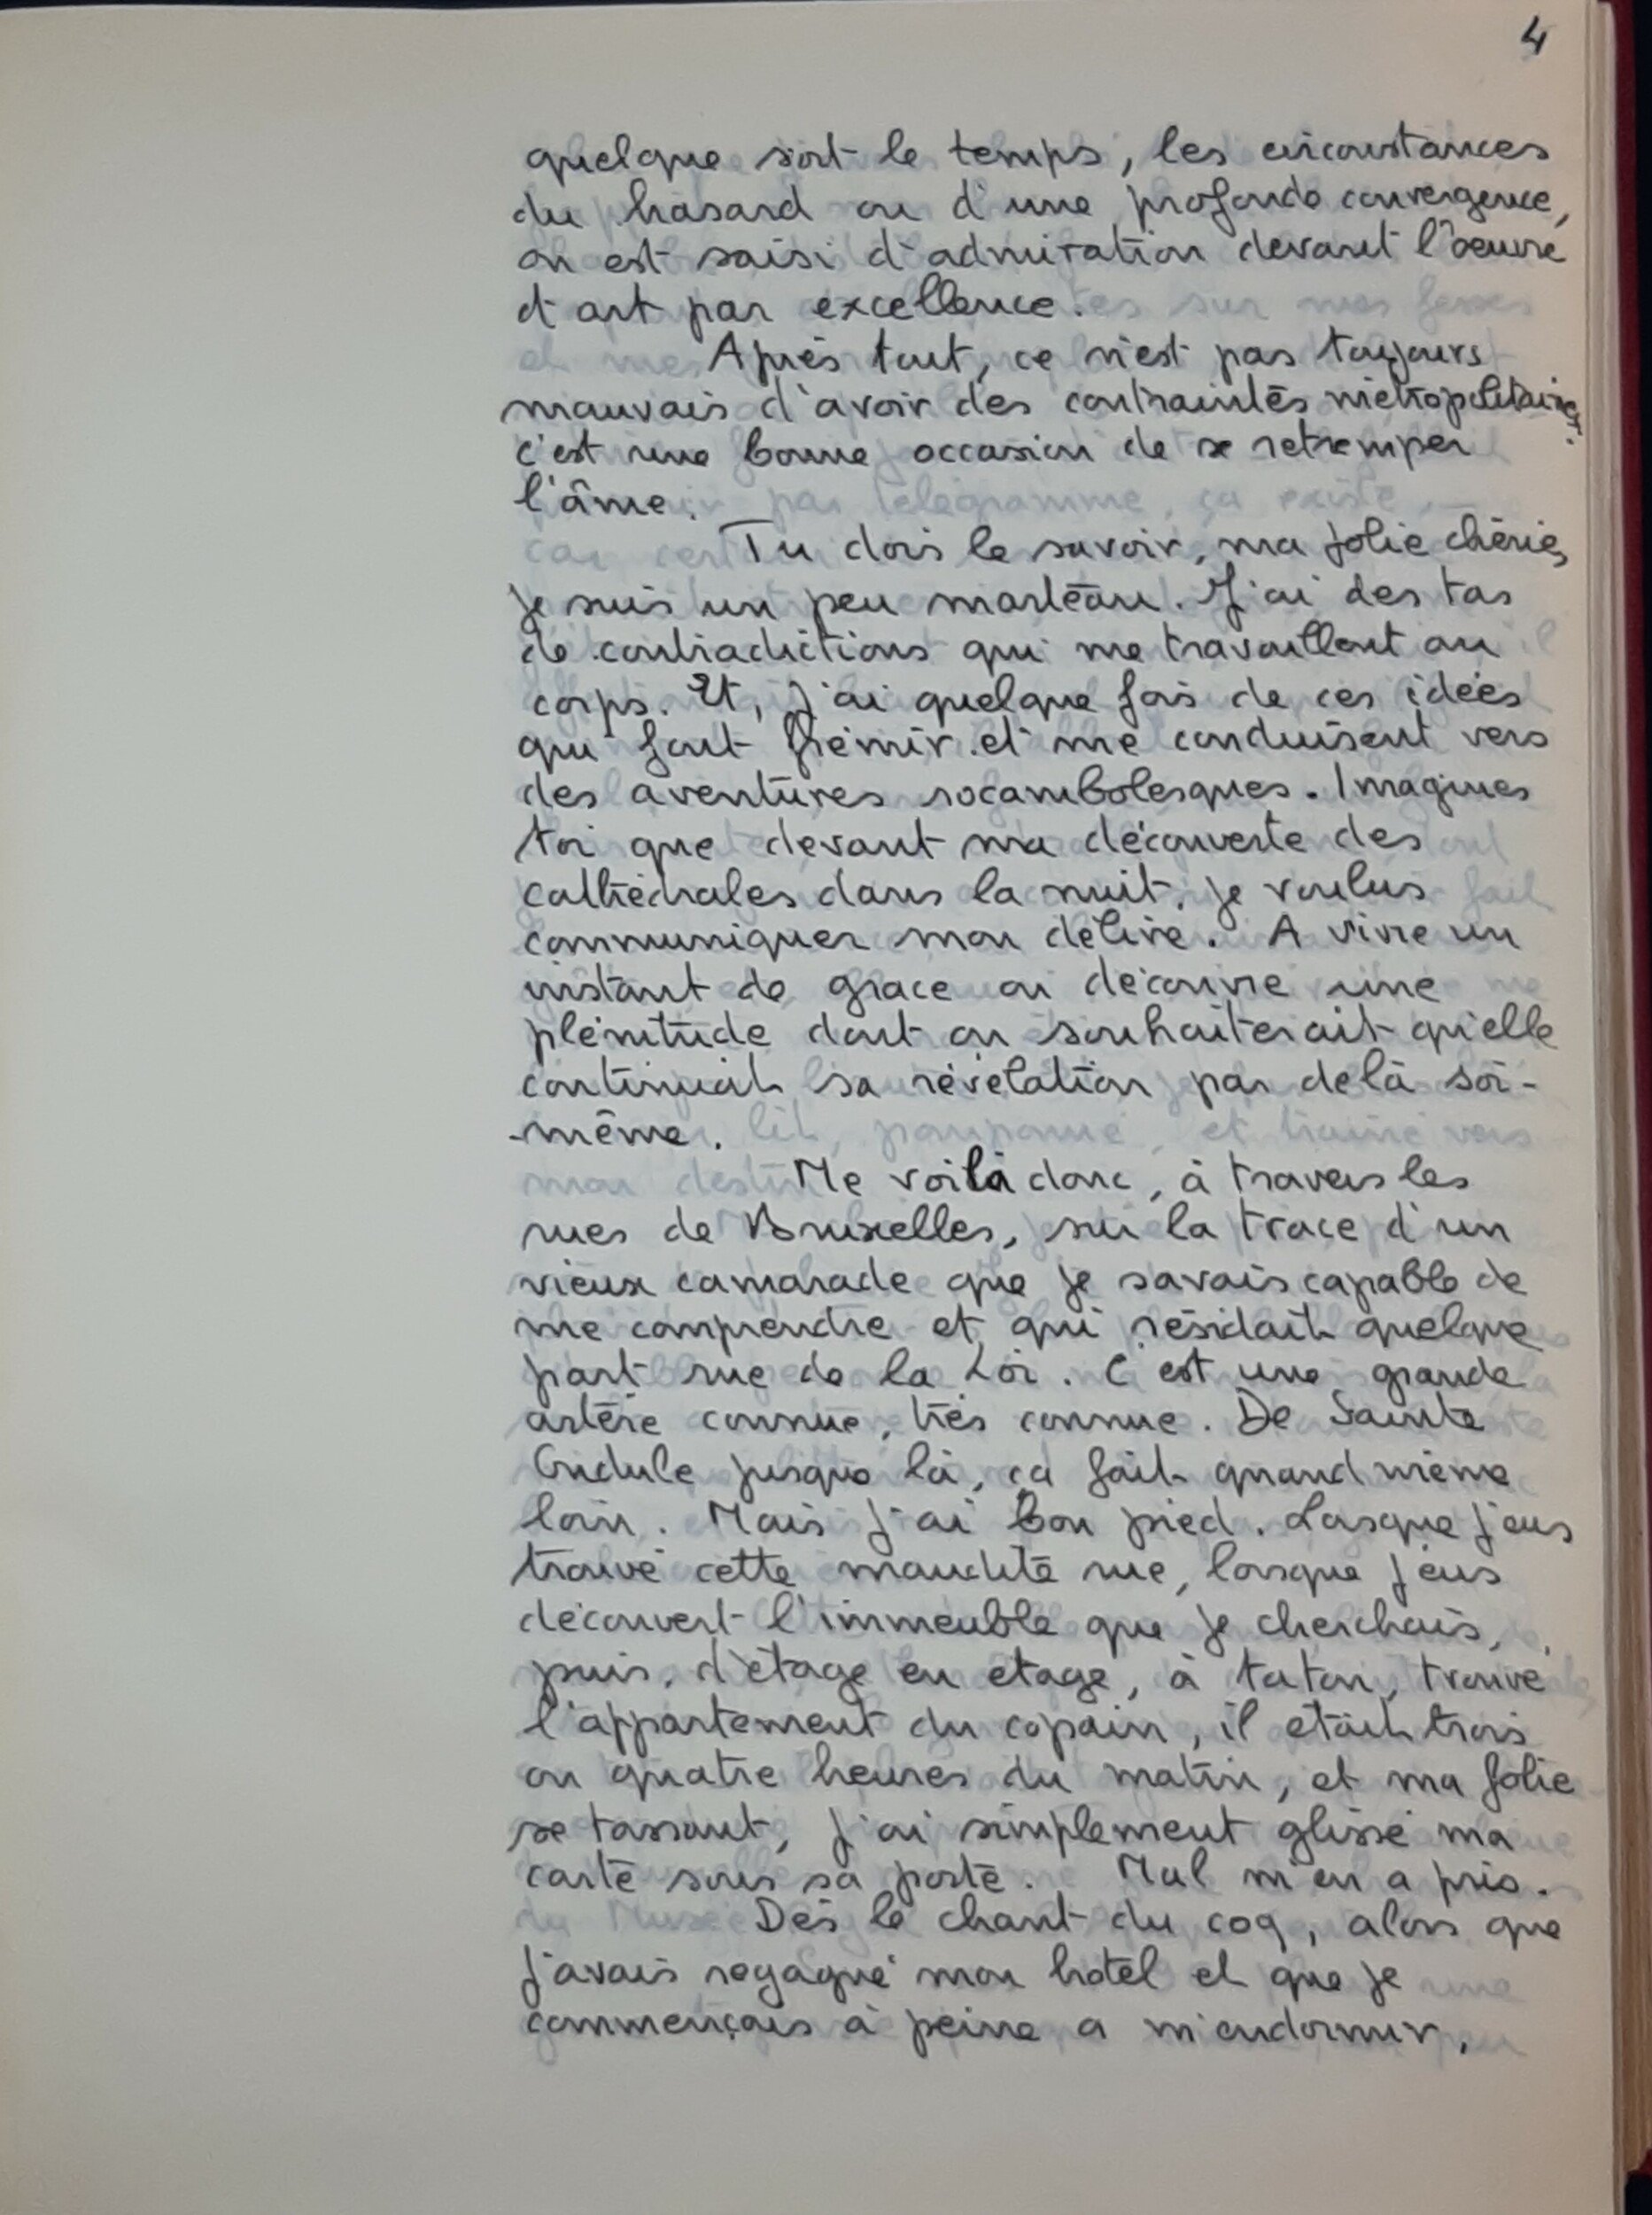 4
quelque soit le temps, les circonstances
du hasard ou d'une profonde convergence,
on est saisi d'admiration devant l'oeuvre
d'art par excellence.
Après tout, ce n'est pas toujours
mauvais d'avoir des contraintes métropolitaines.
c'est une bonne occasion de se retremper
l'âme.
Tu dois le savoir, ma jolie chérie,
je suis un peu marteau. J'ai des tas
de contradictions qui me travaillent au
corps. Et, j'ai quelque fois de ces idées
qui font frémir et me conduisent vers
des aventures rocambolesques. Imagines
toi que devant ma découverte des
cathédrales dans la nuit, je voulus
communiquer mon délire. A vivre un
instant de grace on découvre une
plénitude dont on souhaiterait qu'elle
continuait sa révélation par delà soi-
-même.
Me voilà donc, à travers les
rues de Bruxelles, sur la trace d'un
vieux camarade que je savais capable de
me comprendre et qui résidait quelque
part rue de la Loi. C'est une grande
artère connue, très connue. De Sainte
Gudule jusque là, ça fait quand même
loin. Mais j'ai bon pied. Lorsque j'eus
trouvé cette maudite rue, lorsque j'eus
découvert l'immeuble que je cherchais,
puis, d'étage en étage, à taton, trouvé
l'appartement du copain, il était trois
ou quatre heures du matin, et ma folie
se tassant, j'ai simplement glissé ma
carte sous sa porte. Mal m'en a pris.
Dès le chant du coq, alors que
j'avais regagné mon hotel et que je
commençais à peine a m'endormir,